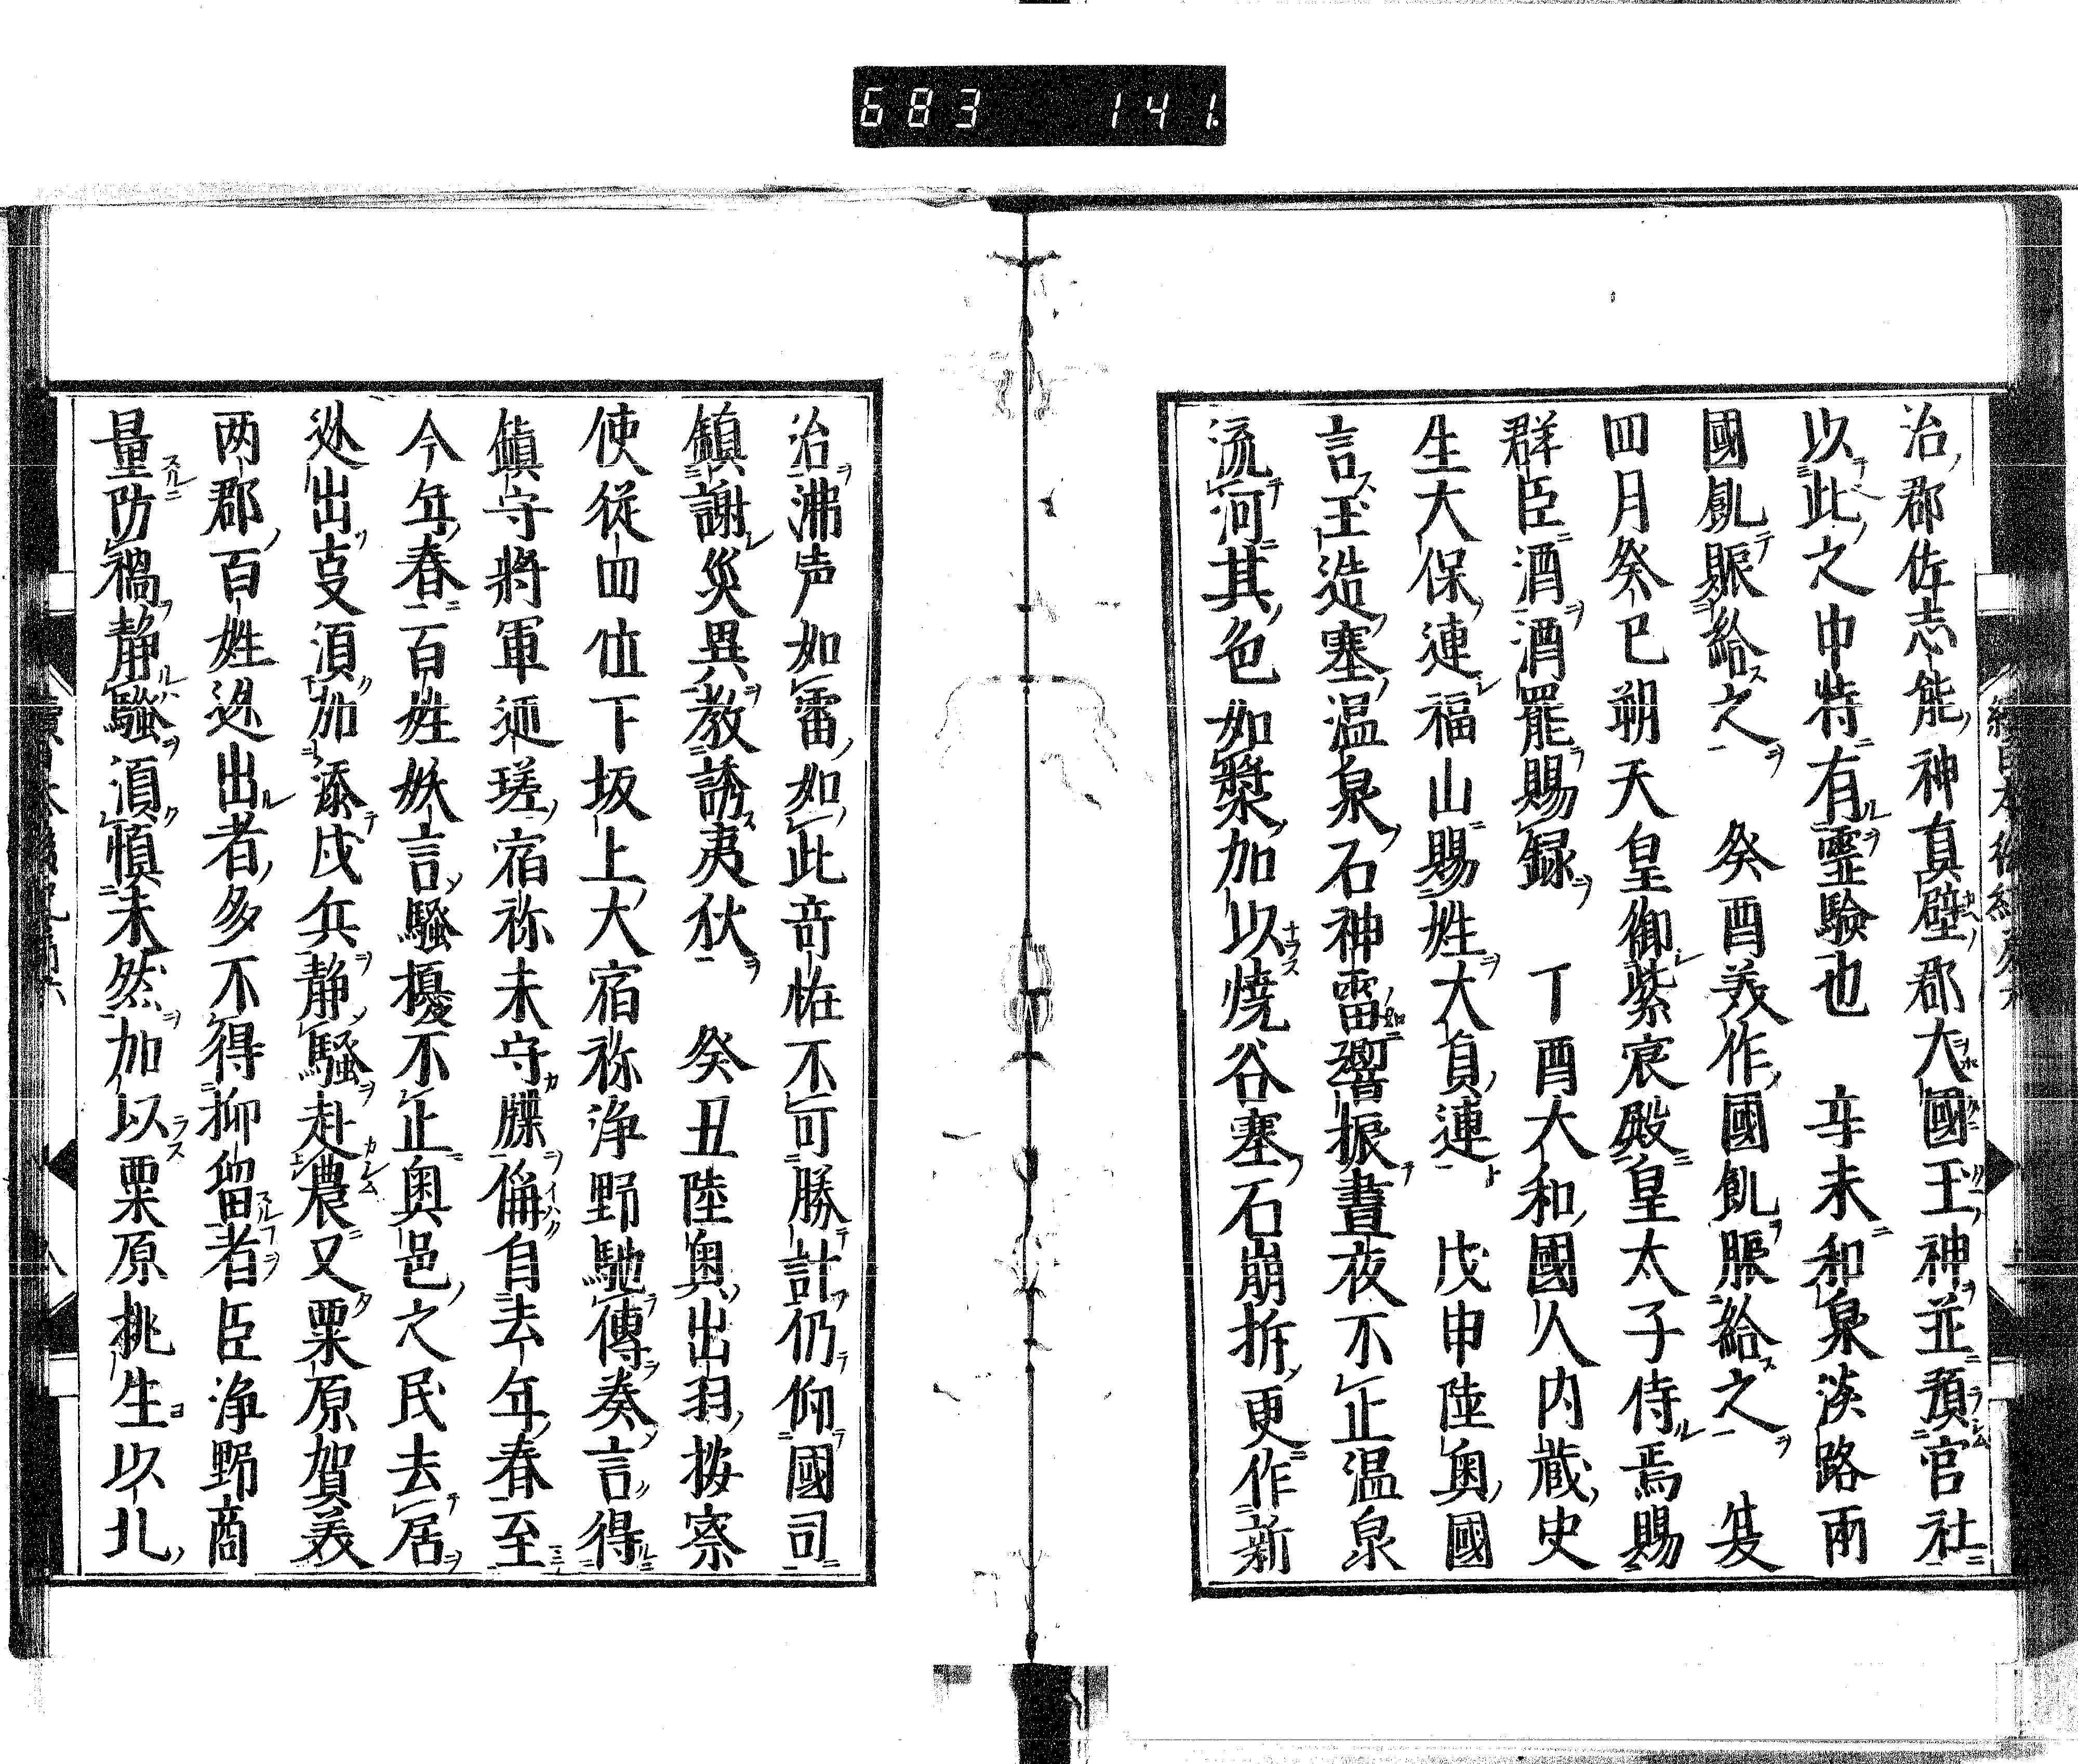 683 141
治郡佐志能神真壁郡大國玉神並預官社
以此之中特有霊験也　辛未和泉淡路兩
國飢賑給之　癸酉美作國飢賑給之　夏
四月癸巳朔天皇御紫宸殿皇太子侍焉賜
群臣酒酒罷賜録　丁酉大和國人内蔵史
生大保連福山賜姓大貞連　戊申陸奥國
言玉造塞温泉石神雷響振晝夜不止温泉
流河其色如漿加以焼谷塞石崩折更作新
治沸声如雷如此奇恠不可勝計仍仰國司
鎮謝災異教誘夷狄　癸丑陸奥出羽按察
使従四位下坂上大宿祢浄野馳傳奏言得
鎮守將軍匝瑳宿祢末守牒偁自去年春至
今年春百姓妖言騒擾不止奥邑之民去居
迯出㕝須加添戍兵静騒赴農又栗原賀美
两郡百姓迯出者多不得抑留者臣浄野商
量防禍静騒須慎未然加以栗原桃生以北